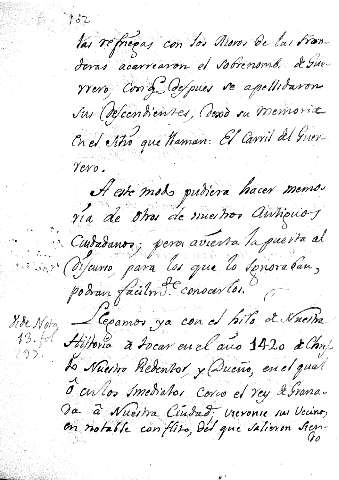 132
tas refriegas con los Moros de las Fron
deras acarrearon el sobrenomb.e de Gue
rrero, con q.e despues se apellidaron
sus Descendientes, dexò su memoria
en el sitio que llaman: El Carril del Gue
rrero.
A este modo pudiera hacer memo
ria de otros de nuestros Antiguos
Ciudadanos; pero avierta la puerta al
Discurso para los que lo ignoraban,
podran facilm.te conocerlos.
Llegamos ya con el hilo de Nuestra
Historia à tocar en el año 1420 de Chris
to Nuestro Redentor y Dueño, en el qual
ò en los imediatos cerco el rey de Grana
da à Nuestra Ciudad, vieronse sus Vecinos
en notable conflito, del que salieron sien
do